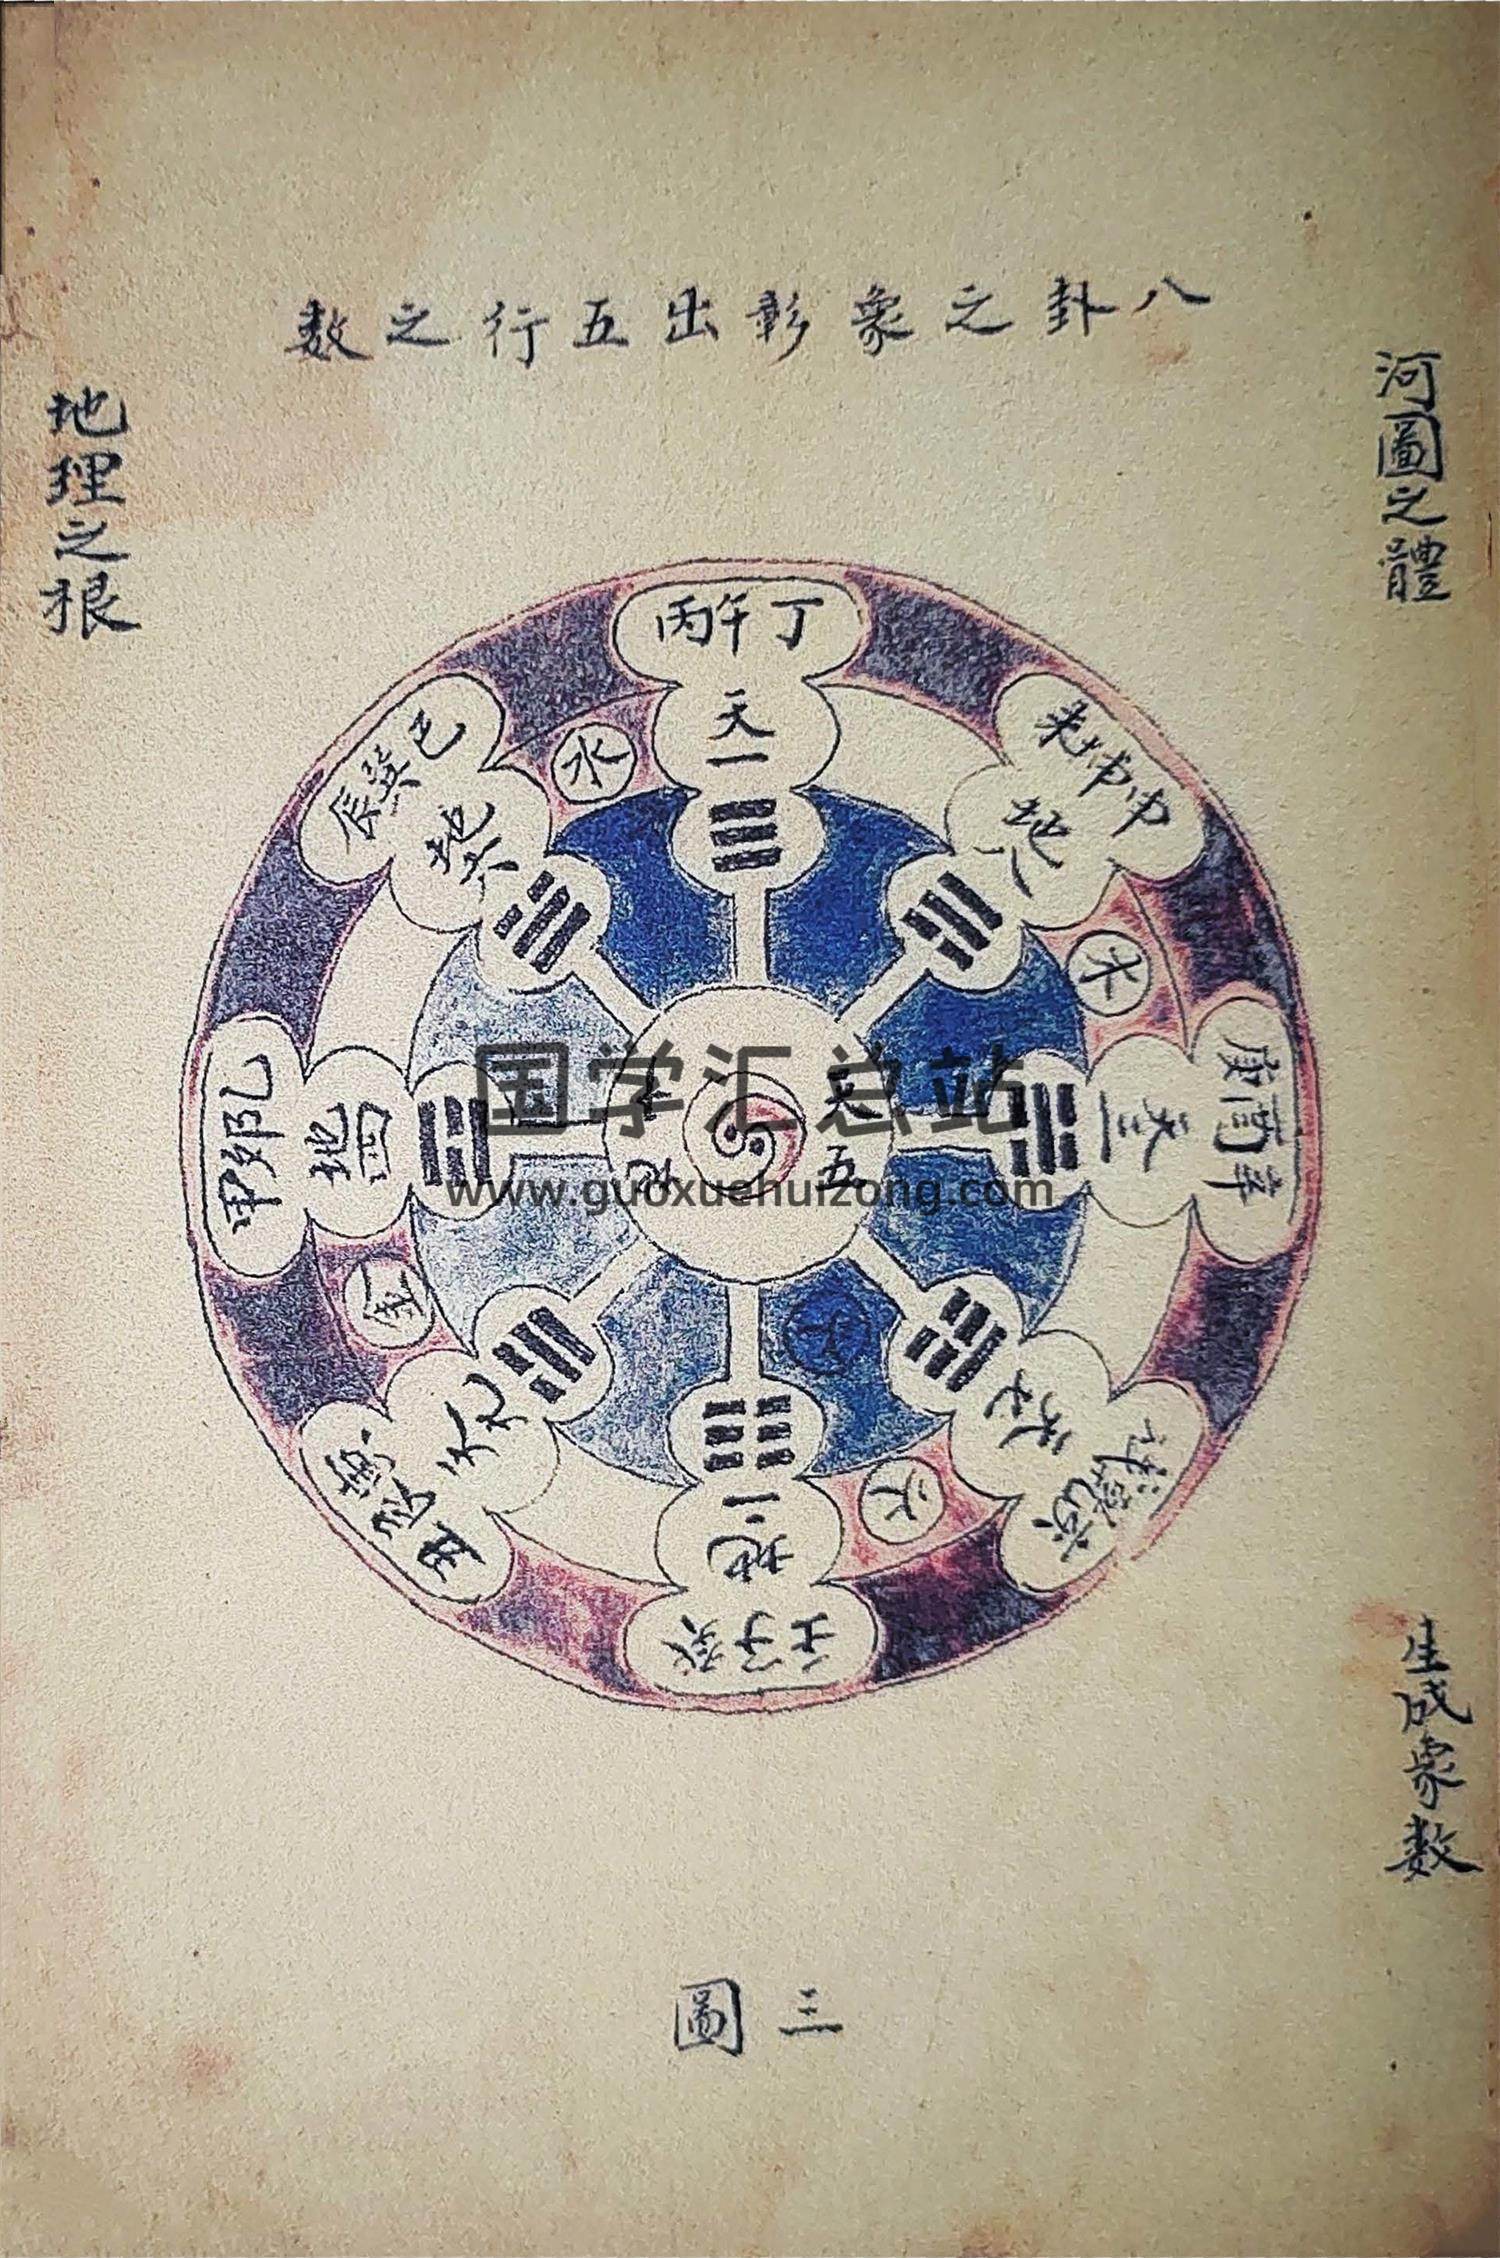 八卦之象彰出五行之数
河圖之體
地理之根
丙午丁
天一
水
辰巽巳
地六
未坤申
地八
木
甲卯乙
地四
庚酉辛
天三
国学汇总站
天五
地十
www.guoxuehuizong.com
金
土
丑艮寅
天九
戌乾亥
天七
火
地二
壬子癸
生成象数
三圖